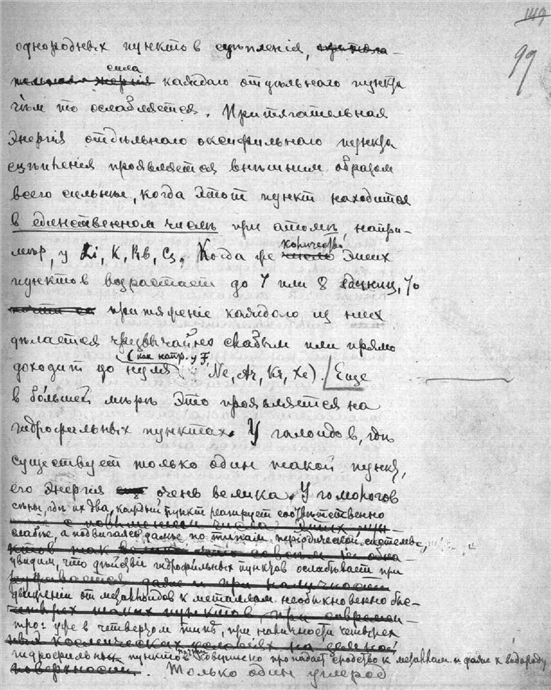 149
99
однородныхъ пунктовъ сцѣпленія,
сила каждаго отдѣльнаго пункта
чѣмъ то ослабляется. Притягательная
энергія отдѣльнаго оксифильнаго пункта
сцѣпленія проявляется внѣшнимъ образомъ
всего сильнѣе, когда этотъ пунктъ находится
въ единственномъ числѣ при атомѣ, напри-
мѣръ, у Li, K, Rb, Cs. Когда же количество этихъ
пунктовъ возрастаетъ до 7 или 8 единицъ, то
притяженіе каждаго изъ нихъ
дѣлается чрезвычайно слабымъ или прямо
(какъ напр. у F
доходитъ до нуля Ne, Ar, Kr, Xe). Еще
въ большей мѣрѣ это проявляется на
гидрофильныхъ пунктахъ. У галоидовъ, гдѣ
существуетъ только одинъ такой пунктъ,
его энергія очень велика. У гоморговъ
сѣры, гдѣ ихъ два, каждый пунктъ реагируетъ соотвѣтственно
слабѣе, а подвигаясь далѣе по типамъ періодической системы,
увидимъ, что дѣйствіе гидрофильныхъ пунктовъ ослабѣваетъ при
удаленіи отъ метаплоидовъ къ металламъ необыкновенно бы-
стро: уже въ четвертомъ типѣ, при наличности четырехъ
гидрофильныхъ пунктовъ почти совершенно пропадаетъ сродство къ металламъ и даже къ водороду
Только одинъ углеродъ